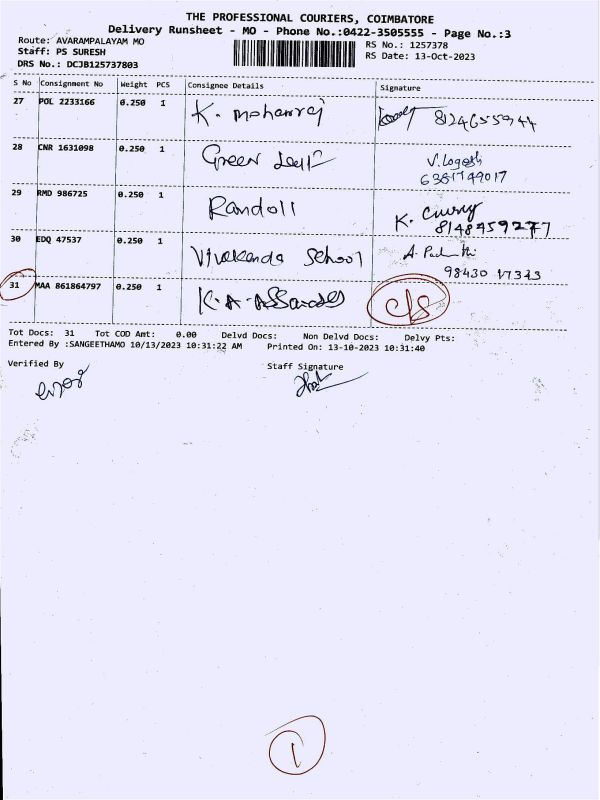 THE PROFESSIONAL COURIERS, COIMBATORE
Delivery Runsheet - MO - Phone No.:0422-3505555 - Page No.:3
Route: AVARAMPALAYAM MO
RS No.: 1257378
Staff: PS SURESH
RS Date: 13-Oct-2023
DRS No.: DCJB125737803
S No Consignment No Weight PCS Consignee Details Signature
27 POL 2233166 0.250 1 K. Mohanraj
28 CNR 1631098 0.250 1 Green V. Logesh
6381749017
29 RMD 986725 0.250 1 Randoll K.
8148959277
30 EDQ 47537 0.250 1 School A.
98430 17343
31 MAA 861864797 0.250 1 K. A. C/S
Tot Docs: 31 Tot COD Amt: 0.00 Delvd Docs: Non Delvd Docs: Delvy Pts:
Entered By :SANGEETHAMO 10/13/2023 10:31:22 AM Printed On: 13-10-2023 10:31:40
Verified By Staff Signature
1